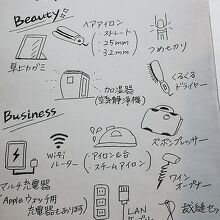 Beauty
ヘアアイロン
・ストレート
・25mm
・32mm
つめセカリ
卓上カガミ
加湿器
(空気清浄機)
くるくる
ドライヤー
Business
WiFi
ルーター
アイロン&台
・スチームアイロン
ズボンプレッサー
マルチ充電器
Apple ウォッチ用
充電器もあります
LAN
ワイン
オープナー
裁縫セ